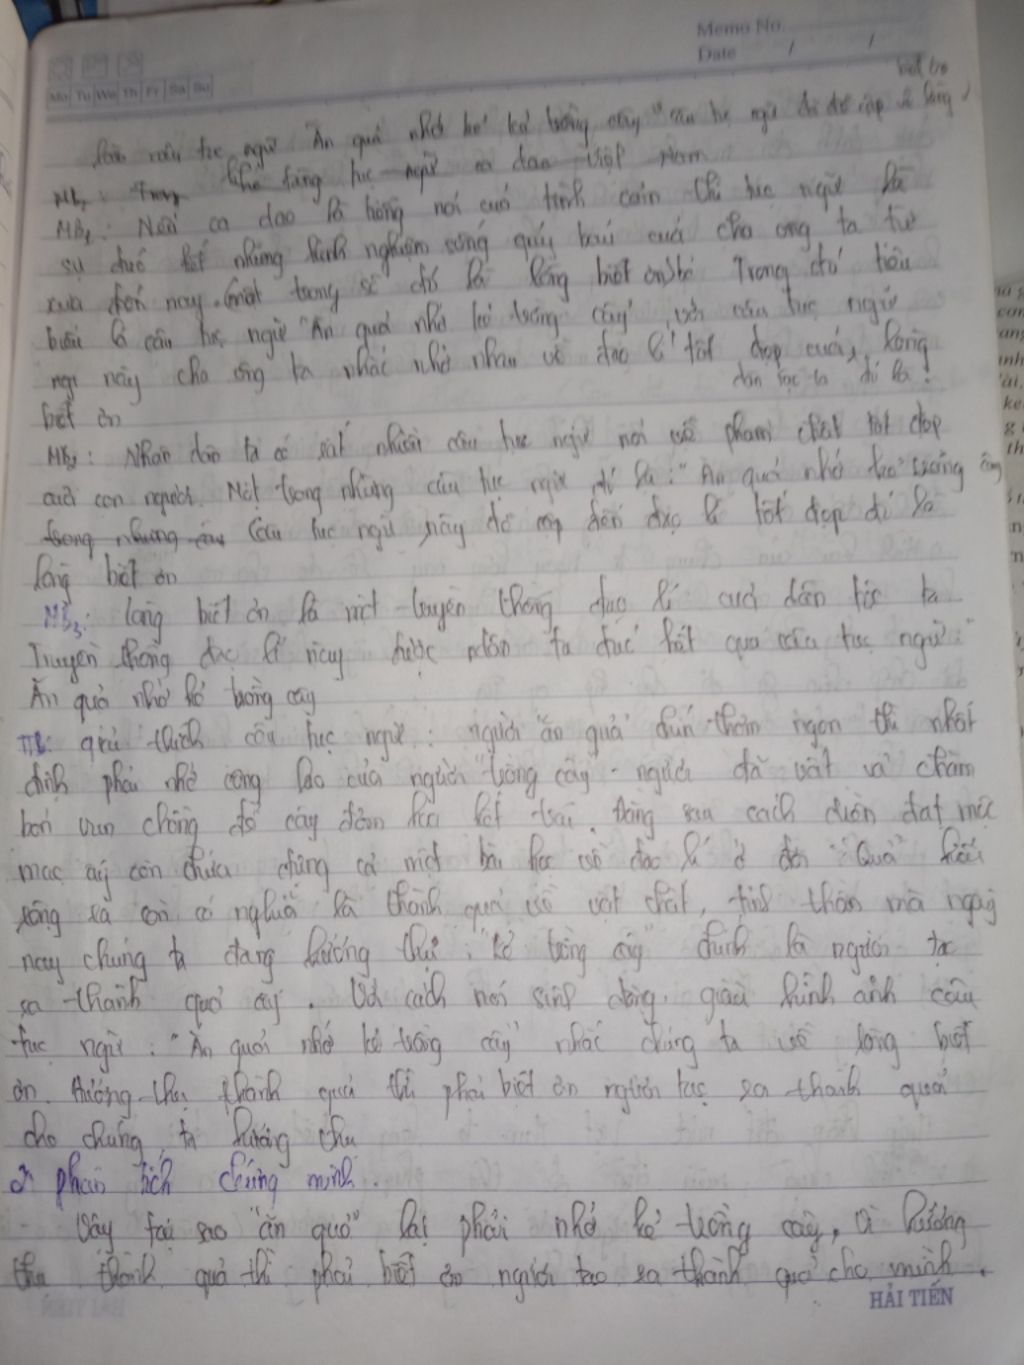 Memo No.
Date / /
Mo Tu We Th Fr Sa Su
biết ơn
câu tục ngữ Ăn quả nhớ kẻ trồng cây "câu tục ngữ đã đề cập về lòng
MB1: Trong kho tàng tục ngữ ca dao Việt Nam
MB1: Nếu ca dao là tiếng nói cuả tình cảm thì tục ngữ là
sự đúc kết những kinh nghiệm sống quý báu cuả cha ông ta từ
xưa đến nay. một trong số đó là lòng biết ơn Trong đó tiêu
biểu là câu tục ngữ "Ăn quả nhớ kẻ trồng cây", với câu tục ngữ
này cha ông ta nhắc nhở nhau về đạo lí tốt đẹp cuả, lòng
dân tộc ta đó là!
biết ơn
MB2: Nhân dân ta có rất nhiều câu tục ngữ nói về phẩm chất tốt đẹp
cuả con người. Một trong những câu tục ngữ đó là: "Ăn quả nhớ kẻ trồng cây
trong những câu Câu tục ngữ này đề cập đến đạo lí tốt đẹp đó là
lòng biết ơn
MB3: lòng biết ơn là một truyền thống đạo lí cuả dân tộc ta
Truyền thống đạo lí này được nhân ta đúc kết qua câu tục ngữ: "
Ăn quả nhớ kẻ trồng cây
TB: giải thích câu tục ngữ: người "ăn quả" thơm ngon thì nhất
định phải nhờ công lao của người "trồng cây". người đã vất vả chăm
bón vun chồng để cây đâm kết trái. Đằng sau cách diễn đạt mộc
mạc ấy còn chứa đựng cả một bài học về đạo lí ở đời "Quả"
rộng ra còn có nghĩa là thành quả về vật chất, tinh thần mà ngày
nay chúng ta đang hưởng thụ: "kẻ trồng cây" chính là người tạo
ra thành quả ấy. Với cách nói sinh động, giàu hình ảnh câu
tục ngữ: "Ăn quả nhớ kẻ trồng cây" nhắc chúng ta về lòng biết
ơn. Hưởng thụ thành quả thì phải biết ơn người tạo ra thành quả
cho chúng ta hưởng thụ
2, phân tích chứng minh.
Vậy tại sao "ăn quả" lại phải nhớ kẻ trồng cây, vì hưởng
thụ thành quả thì phải biết ơn người tạo ra thành quả cho mình.
HẢI TIẾN